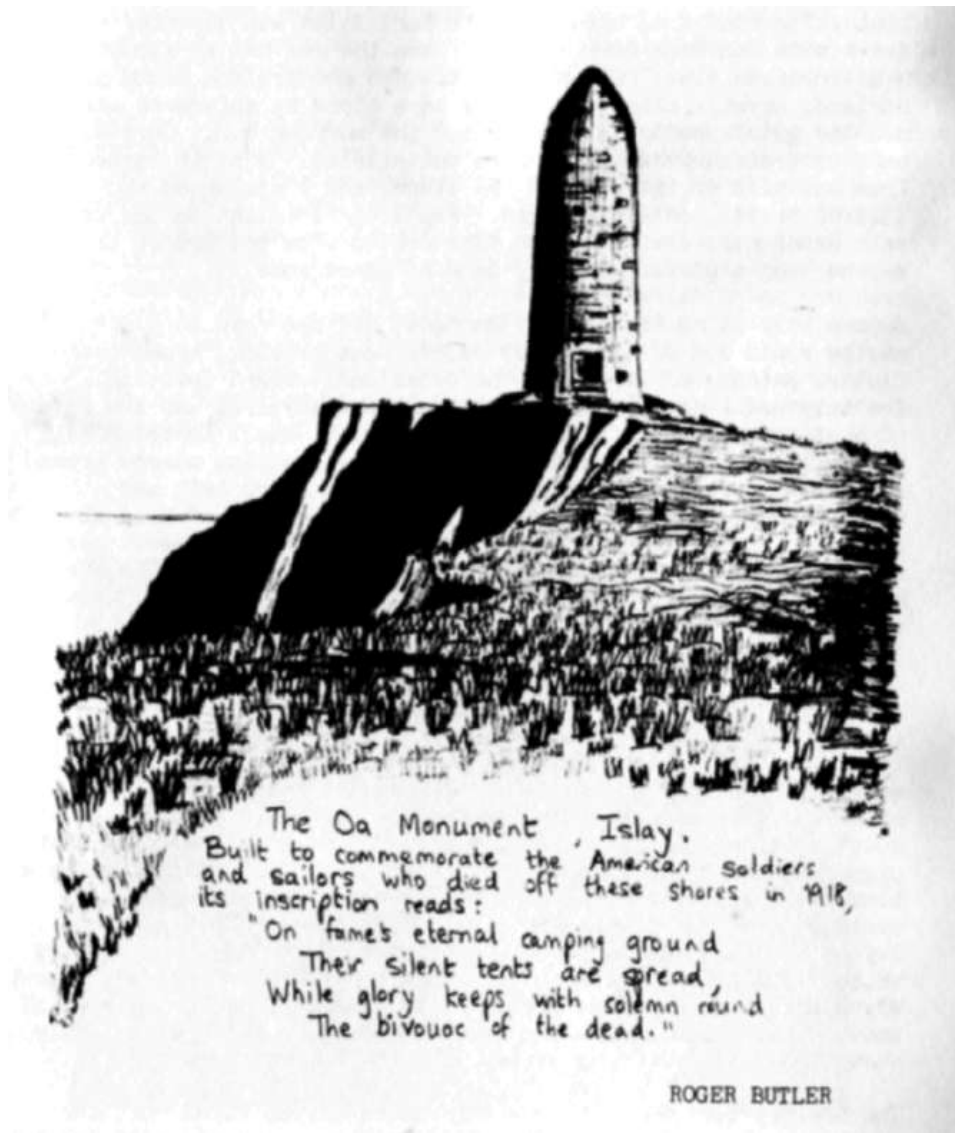 The Oa Monument, Islay.
Built to commemorate the American soldiers
and sailors who died off these shores in 1918,
its inscription reads:
"On fame's eternal camping ground
Their silent tents are spread,
While glory keeps with solemn round
The bivouac of the dead."
ROGER BUTLER